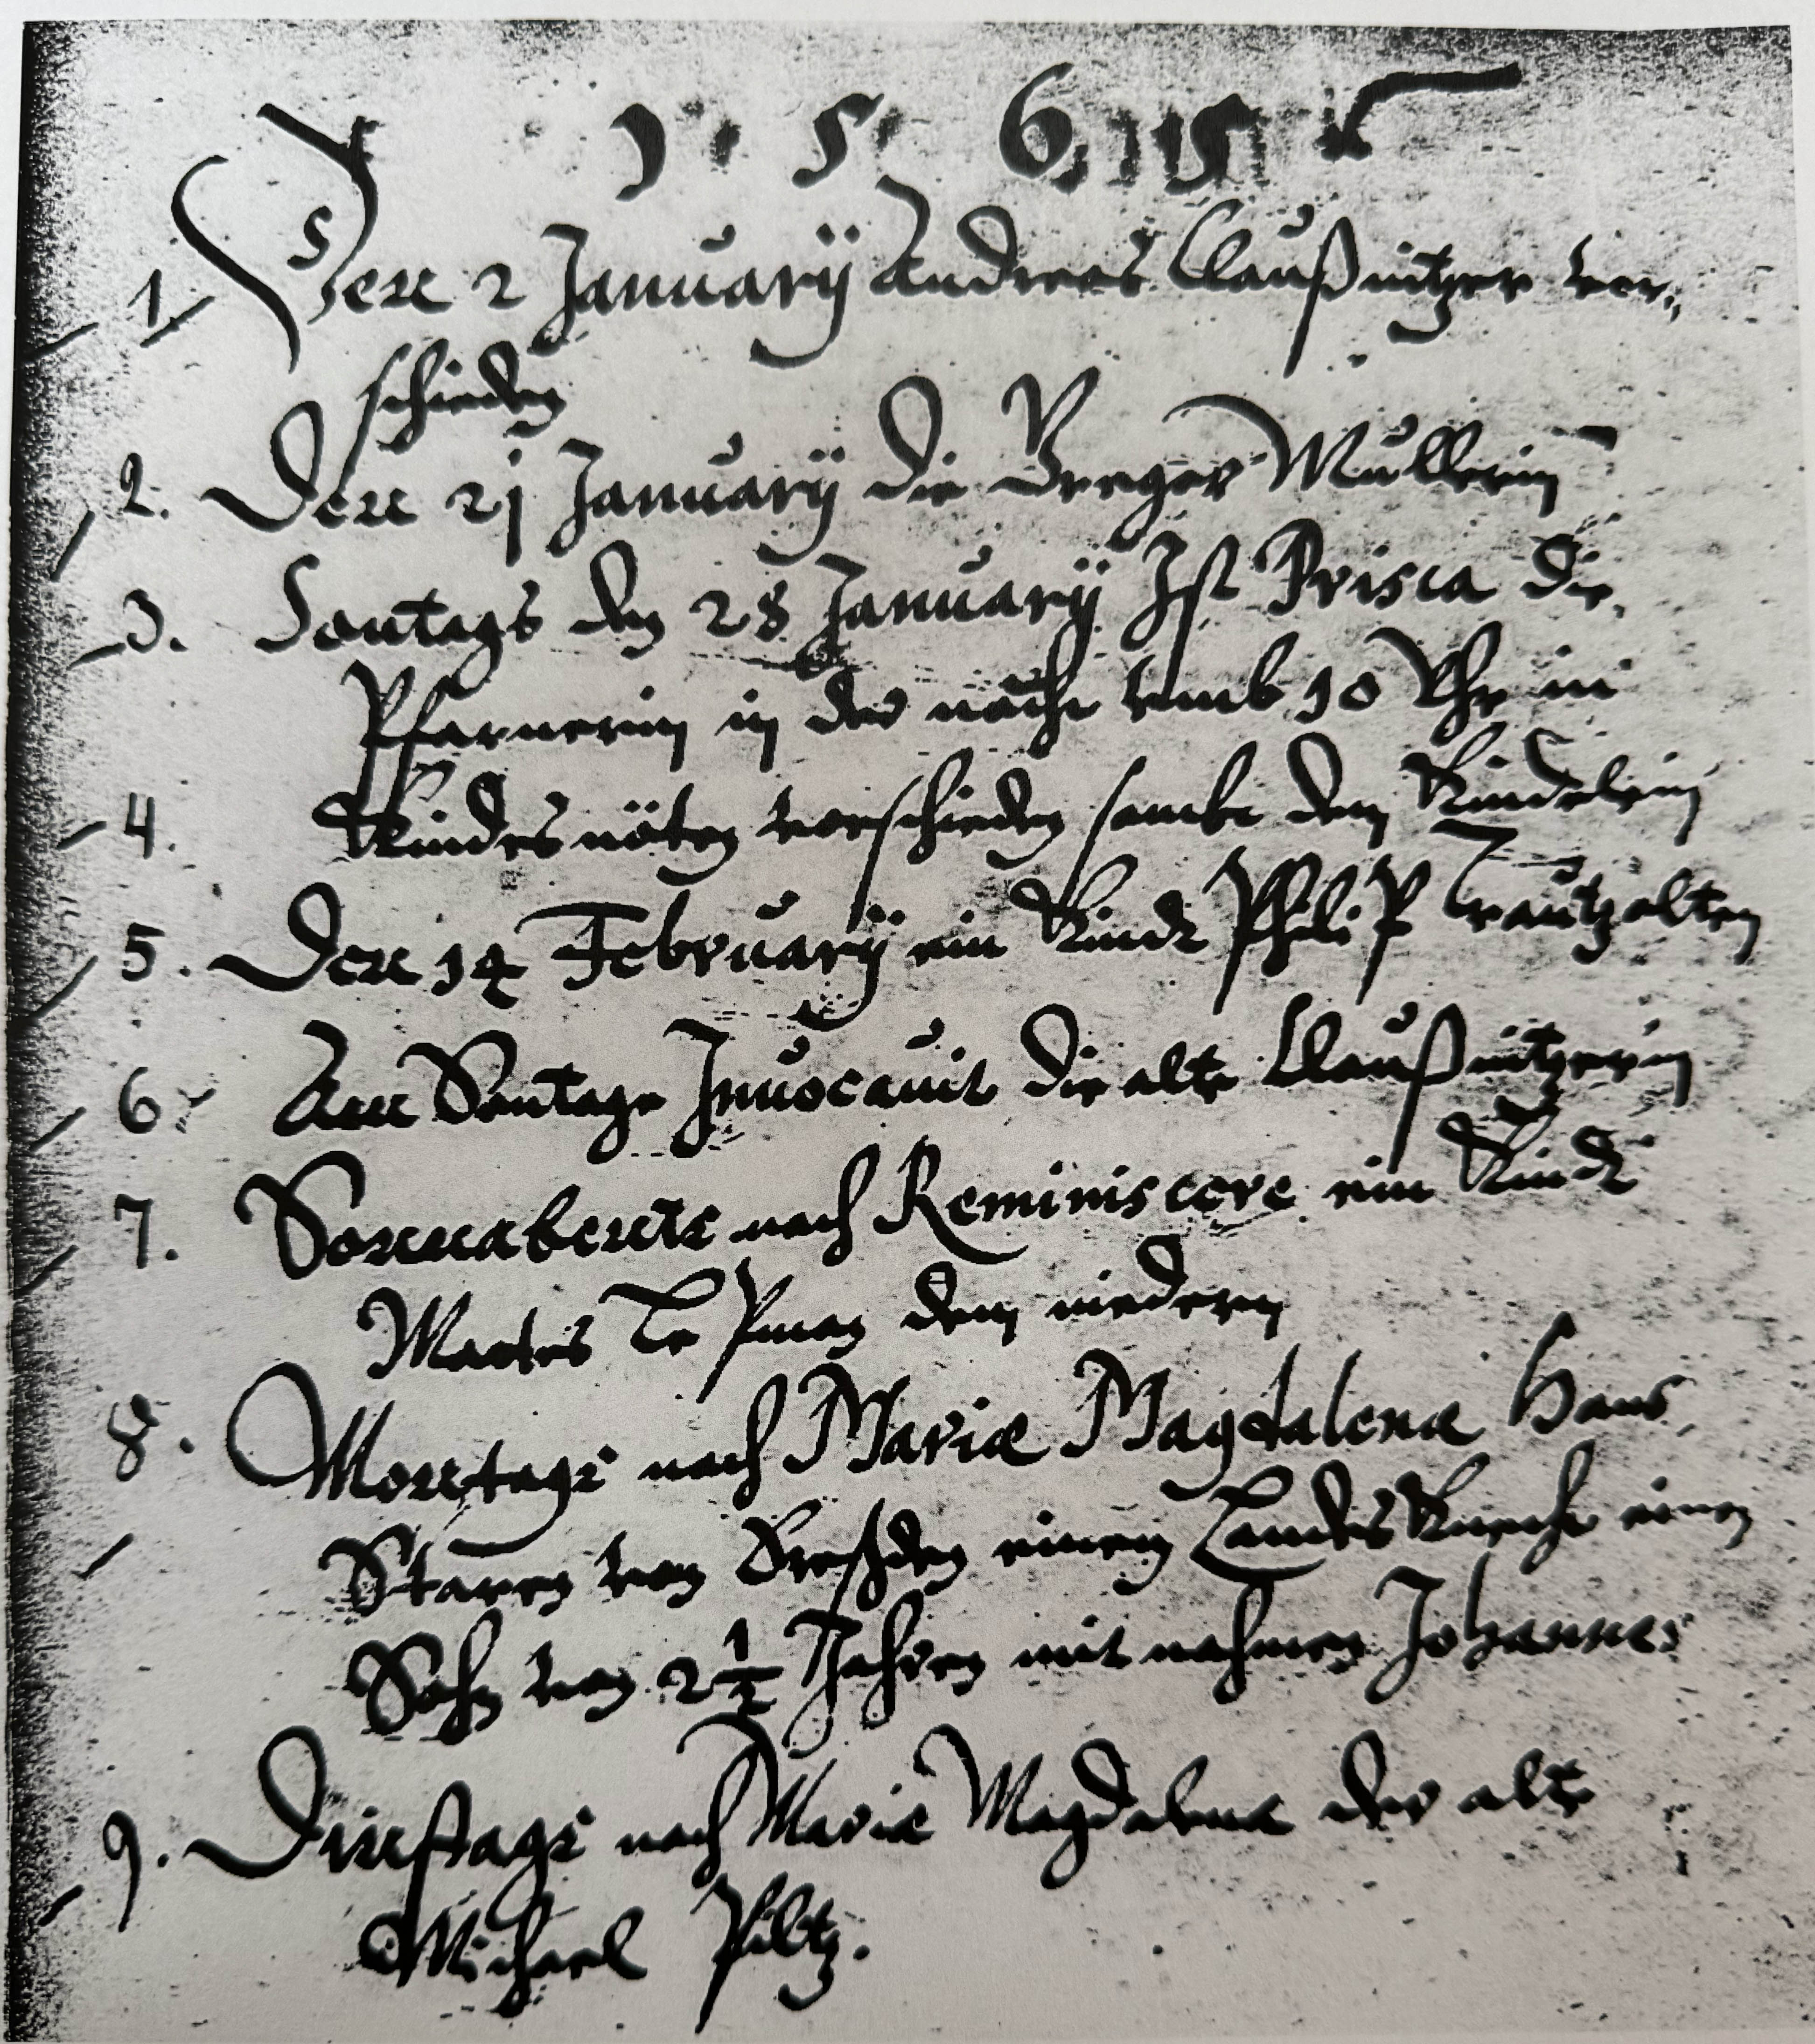 1 5 65
1 Den 2 Januarij Andreas Claußnitzer ver,,
schieden
2. Den 21 Januarij die Greger Müllerin
3. Sontags den 28 Januarij Ist Prisca die
Pfarnerin in der nacht vmb 10 Vhr in
4. Kindesnöten verschieden sambt dem Kindelein
5. Den 14 February ein Kindt Philip Trautzolten
6. Am Sontage Inuocauit die alte Claußnitzerin
7. Sonnabents nach Reminiscere ein Kindt
Mattes dem niedern
8. Montags nach Mariæ Magdalenæ Hans
Staren von Dreßden einem Landes Knecht einen
Sohn von 2½ Jahren mit nahmen Johannes
9. Dinstags nach Mariæ Magdalenæ der alte
Michael Piltz.